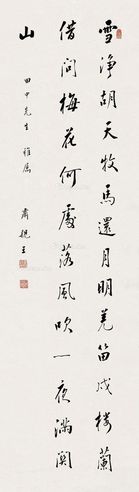 雪净胡天牧馬還月明羌笛戍楼蘭
借問梅花何處落風吹一夜滿関
山
田中先生 雅属
肅親王